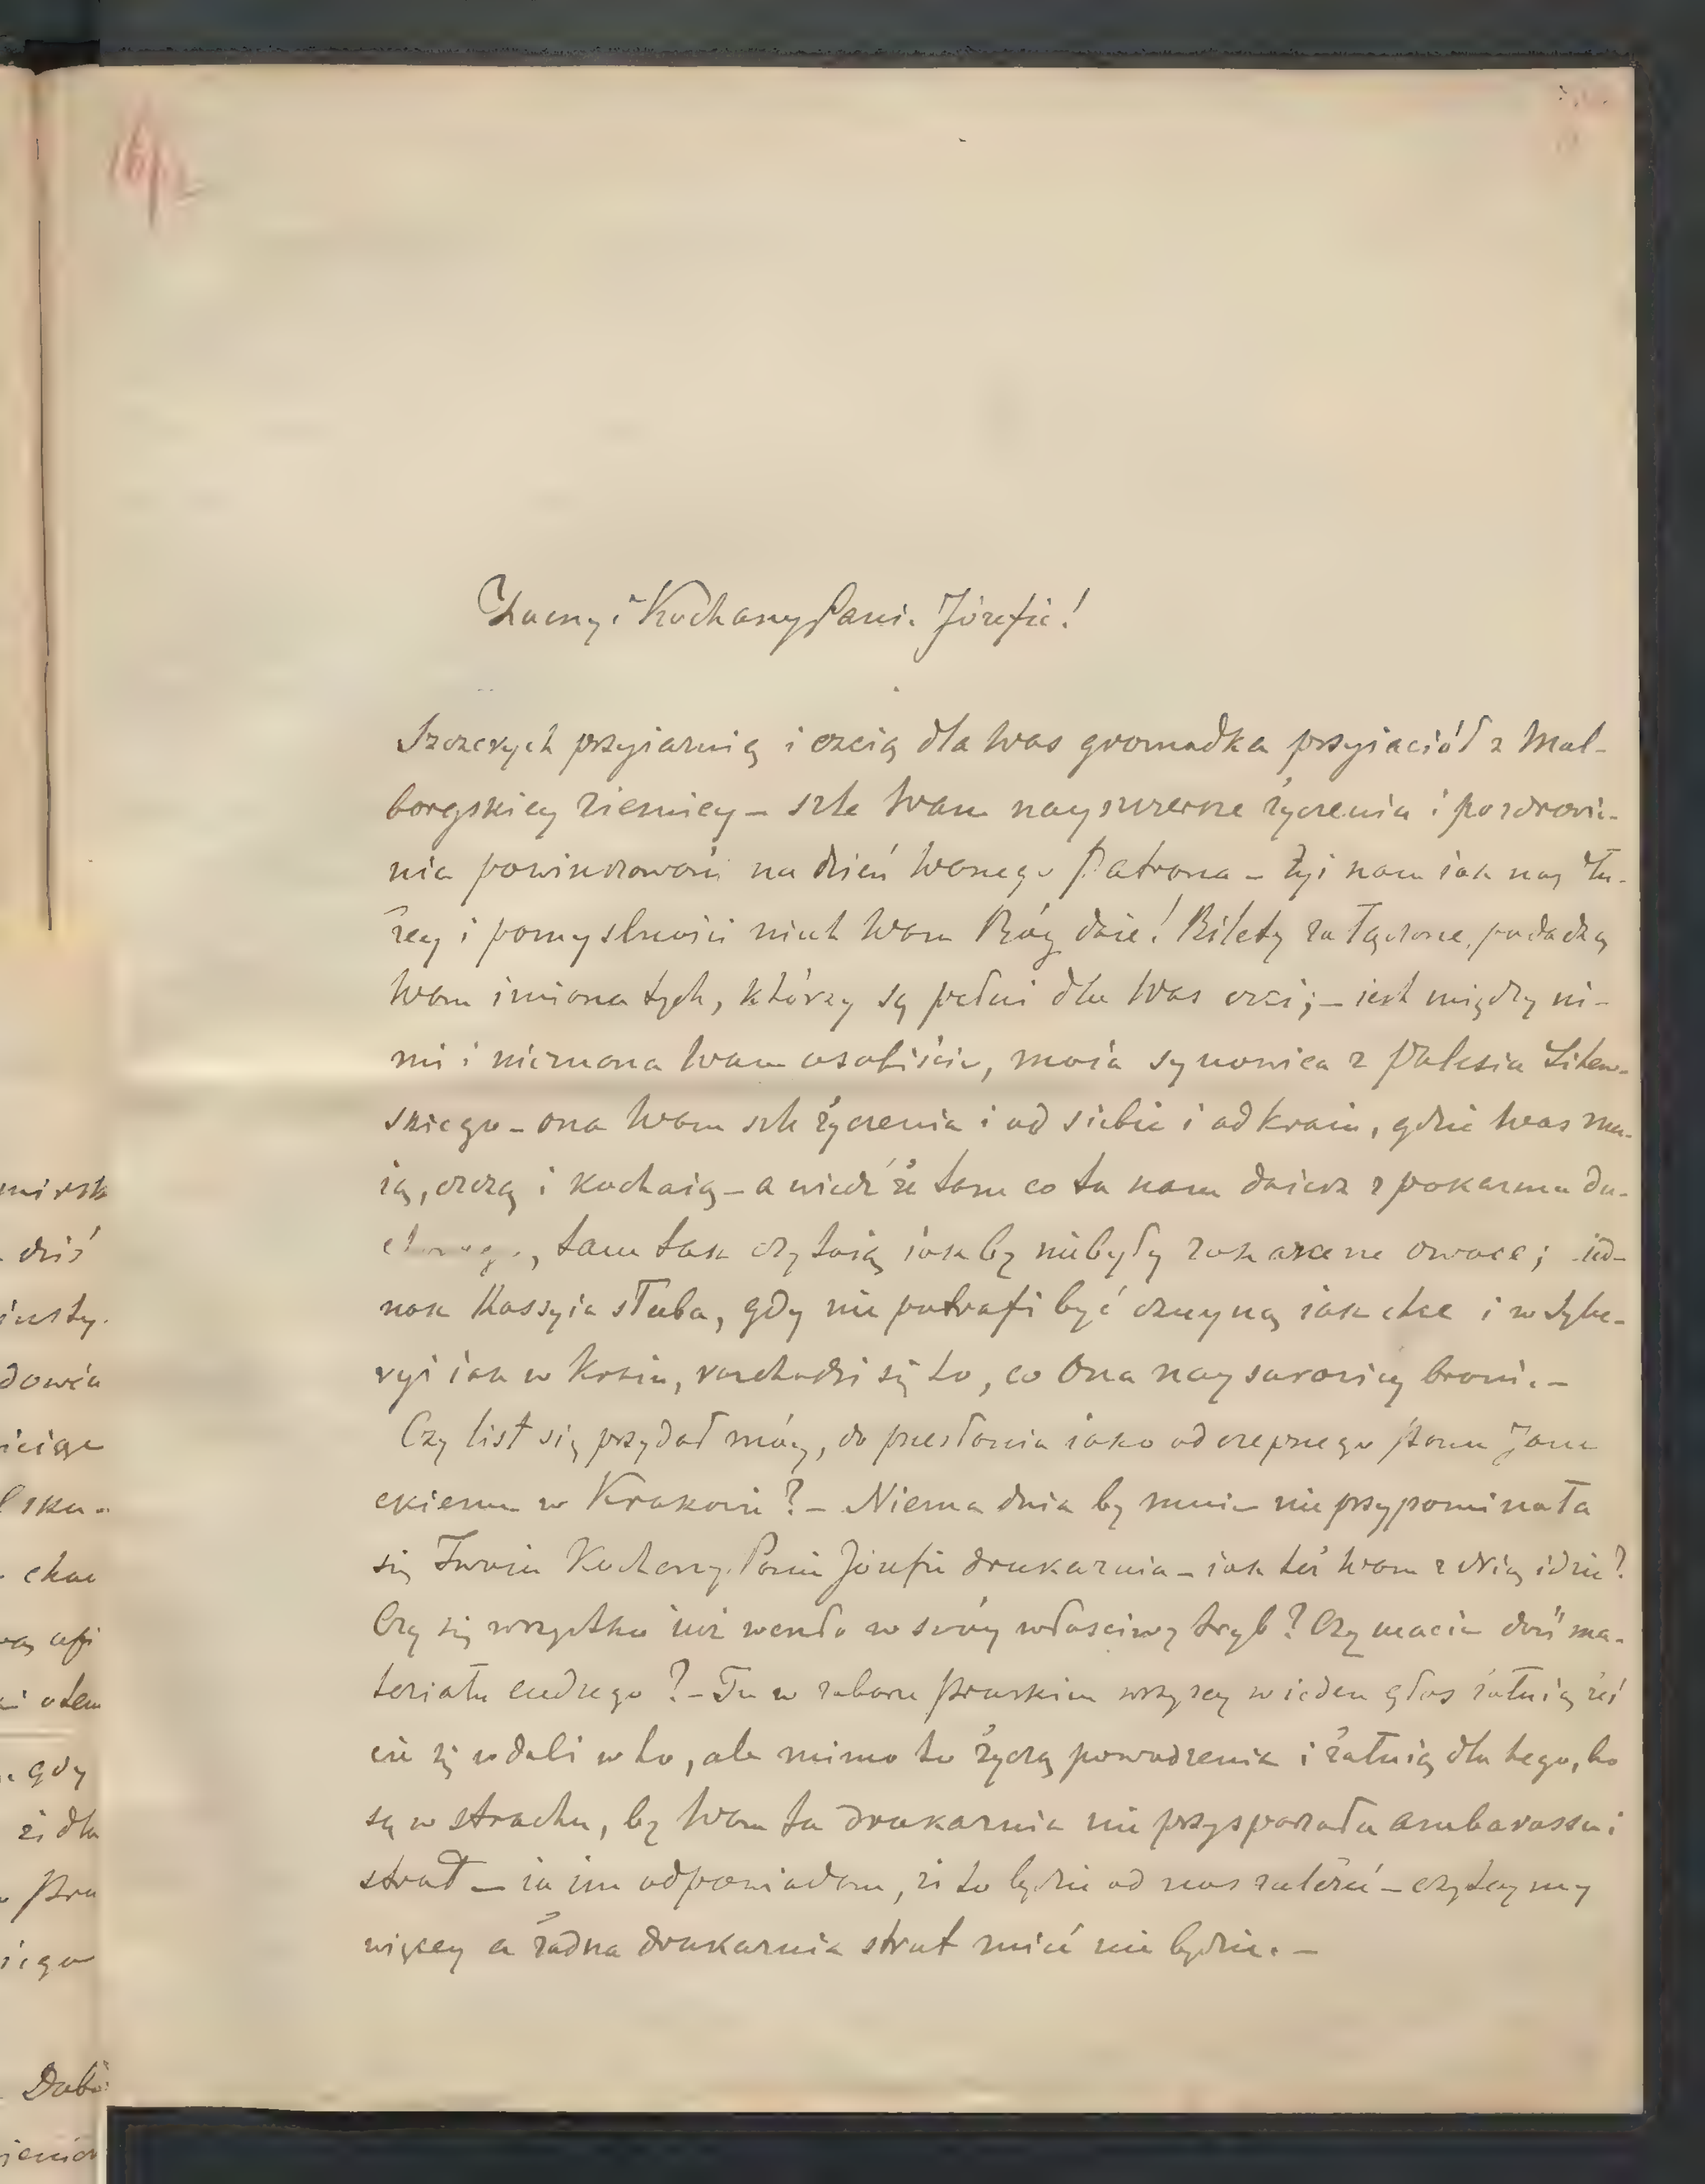 Zacny i Kochany Panie Józefie!
Szczerych przyiaźnią i czcią dla Was gromadka przyiaciół z Mal-
borgskiey ziemicy – szle Wam nayszczersze życzenia i pozdrowie-
nia powinszowań na dzień Waszego Patrona – żyi nam iak nay dłu-
żey i pomyslności niech Wam Bóg daie! Bilety załączone, podadzą
Wam imiona tych, którzy są pełni dla Was czci; – iest między ni-
mi i nieznana Wam osobiście, moia synowica z Polesia Litew-
skiego – ona Wam szle życzenia i od siebie i od Kraiu, gdzie Was zna-
ią, czczą i kochaią – a wiedz że tam co tu nam daiesz z pokarmu du-
, tam tak czytaią iakby niebyły zakazane owoce; ied-
nak Rossyia słaba, gdy nie potrafi być czuyną iak chce i w Sybe-
ryi iak w Kraiu, rozchodzi się to, co Ona naysurowiey broni. –
Czy list się przydał móy, do przesłania iako odczepnego Panu Jane
ckiemu w Krakowie? – Niema dnia by mnie nie przypominała
się Twoia Kochany Panie Józefie drukarnia – iak też Wam z Nią idzie?
Czy się wszystko iuż weszło w swóy właściwy tryb? Czy macie dość ma-
teriału cudzego? – Tu w zaborze Pruskim wszyscy w ieden głos żałuią żeś
cie się wdali w to, ale mimo to życzą powodzenia i żałuią dla tego, bo
są w strachu, by Wam ta drukarnia nie przysparzała ambarassu i
strat – ia im odpowiadam, że to będzie od nas zależeć – czytaymy
więcey a żadna drukarnia strat mieć nie będzie. –